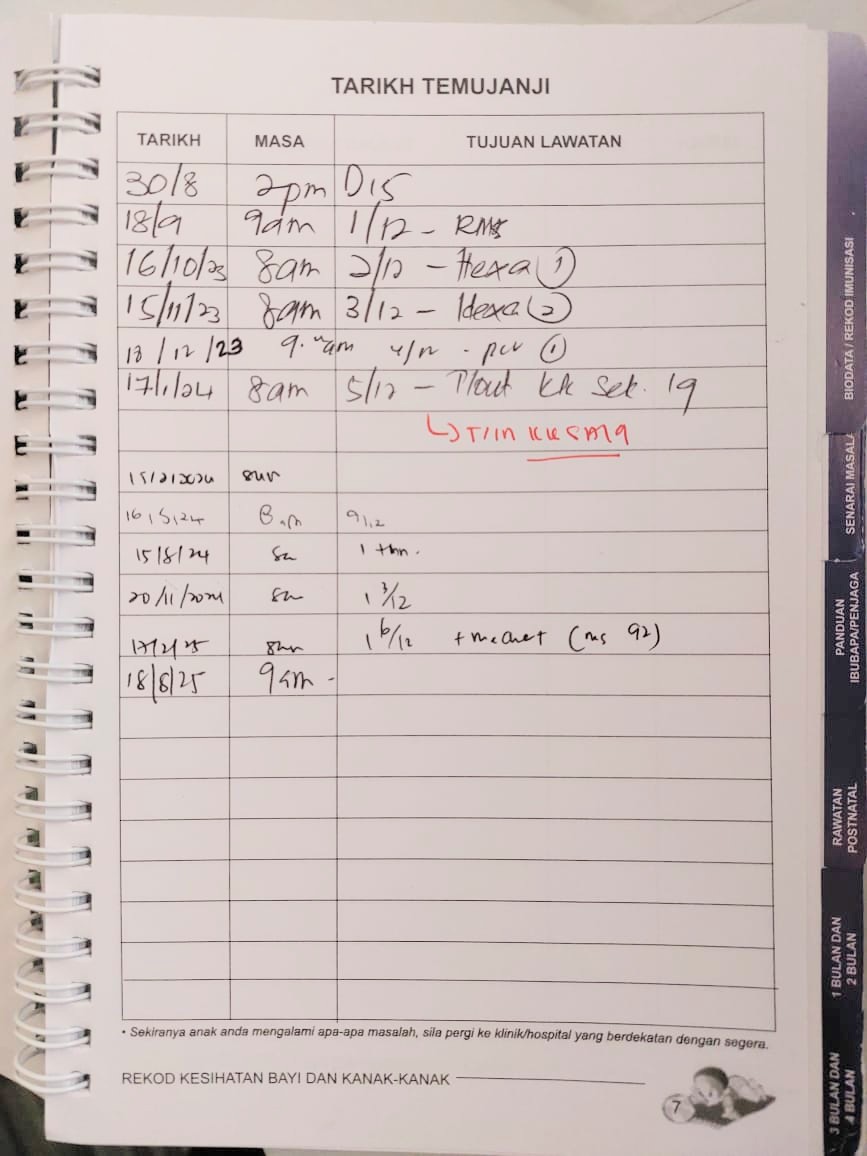 TARIKH TEMUJANJI
TARIKH MASA TUJUAN LAWATAN
30/8 2pm D15
18/9 9am 1/12 - RME
16/10/23 8am 2/12 - Hexa ①
15/11/23 8am 3/12 - Hexa ②
18/12/23 9. am 4/12 - pcv ①
17/1/24 8am 5/12 - T/out KK Sek. 19
↳ T/in KKSM19
15/2/2024
16/5/24 9/12
15/8/24 1 thn.
20/11/2024 1 3/12
17/2/25 1 6/12 + mchat (ms 92)
18/8/25 9am -
• Sekiranya anak anda mengalami apa-apa masalah, sila pergi ke klinik/hospital yang berdekatan dengan segera.
REKOD KESIHATAN BAYI DAN KANAK-KANAK
7
BIODATA / REKOD IMUNISASI
SENARAI MASALA
PANDUAN
IBUBAPA/PENJAGA
RAWATAN
POSTNATAL
1 BULAN DAN
2 BULAN
3 BULAN DAN
4 BULAN